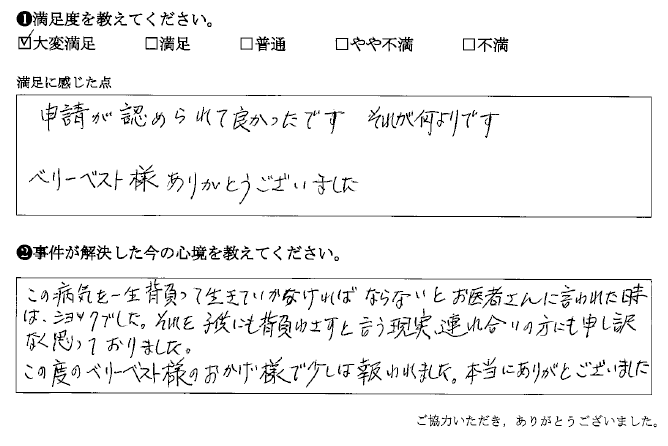 ❶満足度を教えてください。
☑大変満足 □満足 □普通 □やや不満 □不満
満足に感じた点
申請が認められて良かったです それが何よりです
ベリーベスト様ありがとうございました
❷事件が解決した今の心境を教えてください。
この病気を一生背負って生きていかなければならないとお医者さんに言われた時
は、ショックでした。それを子供にも背負わすと言う現実、連れ合いの方にも申し訳
なく思っておりました。
この度のベリーベスト様のおかげ様で少しは報われました。本当にありがとございました
ご協力いただき，ありがとうございました。